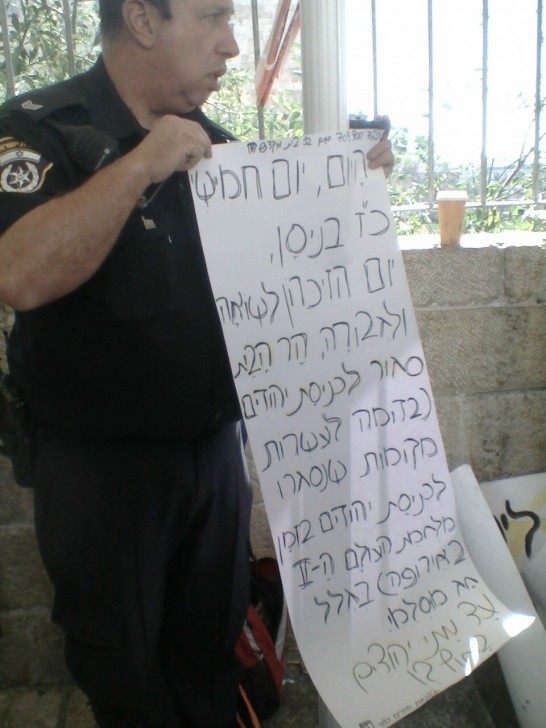 היום, יום חמישי
כ"ז בניסן,
יום הזיכרון לשואה
ולגבורה, הר הבית
סגור לכניסת יהודים
(בדומה לעשרות
מקומות שנסגרו
לכניסת יהודים בזמן
מלחמת העולם ה-II
באירופה) בגלל
חג מוסלמי
עד מתי יהודים